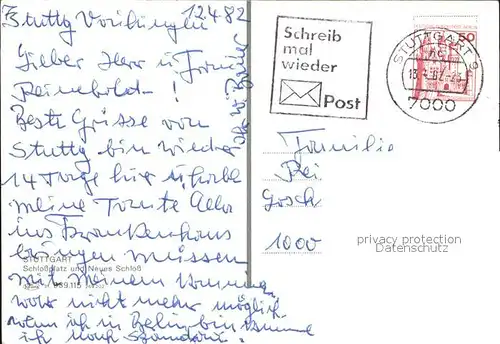 Stuttg Vaihingen 12.4.82
Lieber Herr u Familie
Reinebold.!
Beste Grüsse von
Stuttg bin wieder
14 Tage hier u habe
meine Tante
ins Krankenhaus
bringen müssen
mit meinem
wars nicht mehr möglich
wenn ich in Berlin bin komme
ich nach Spandau.
STUTTGART
Schloßplatz und Neues Schloß
939.115
Schreib
mal
wieder
Post
50
STUTTGART 9
7000
Familie
Rei
Gosch
1000
privacy protection
Datenschutz